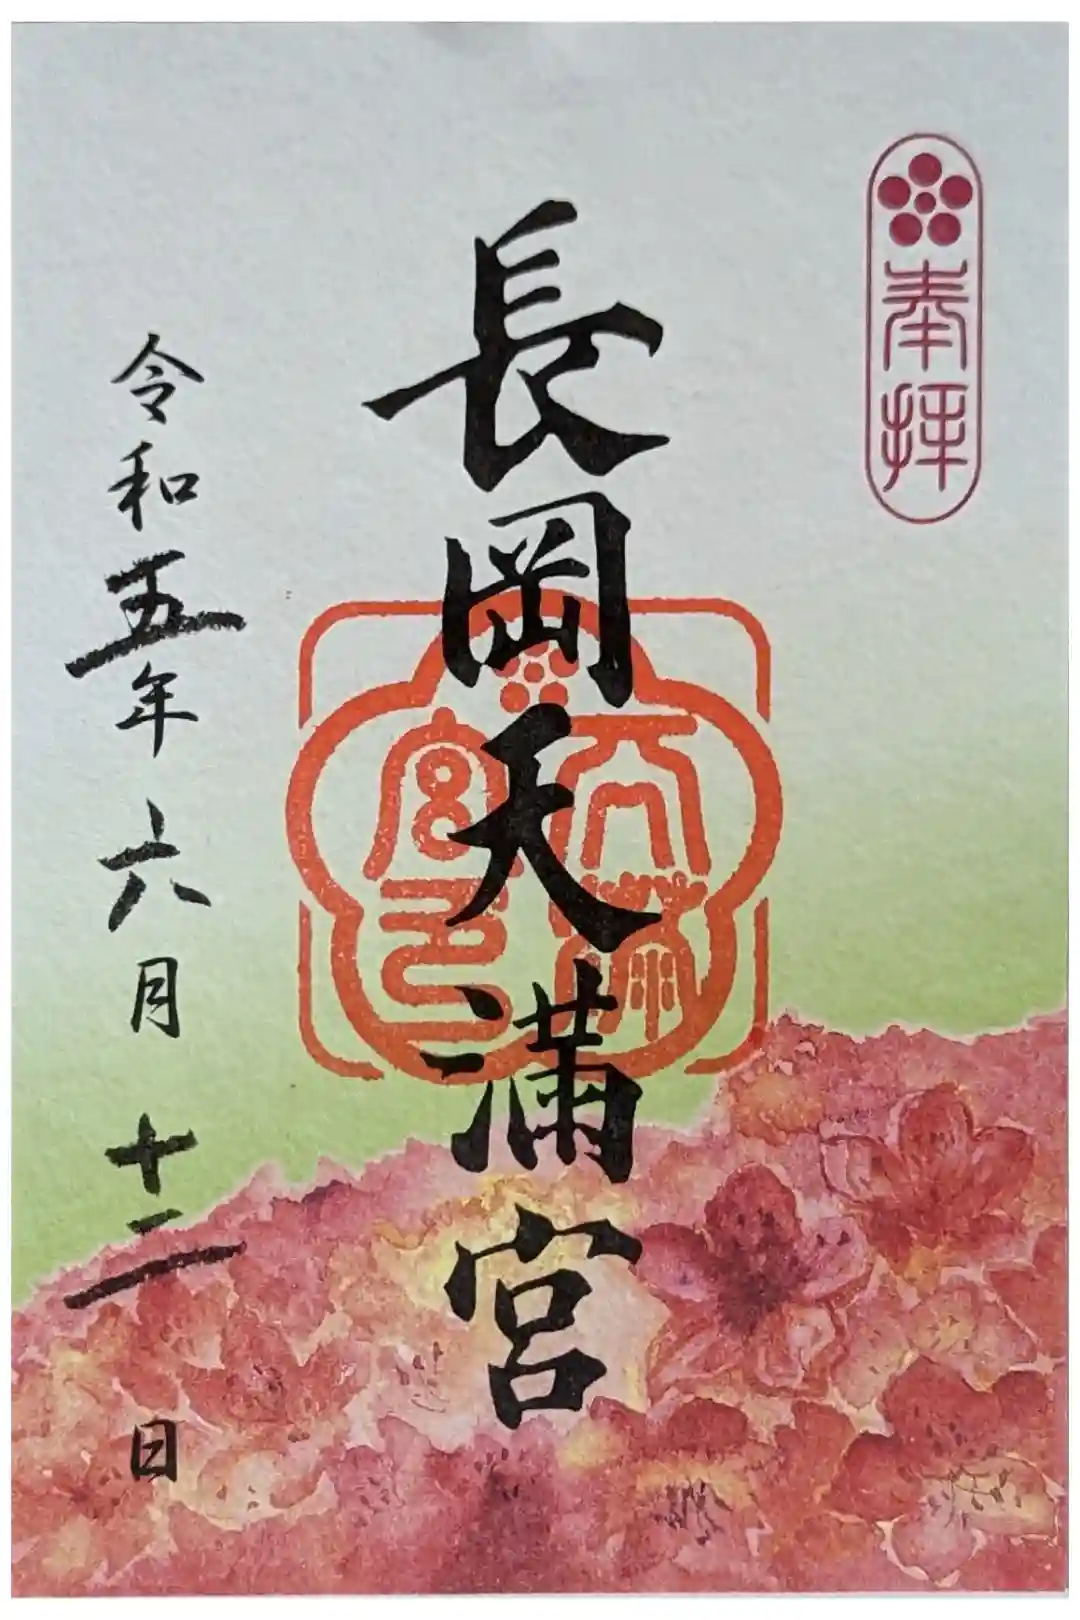 奉拝
長岡天満宮
天満宮印
令和五年六月十二日